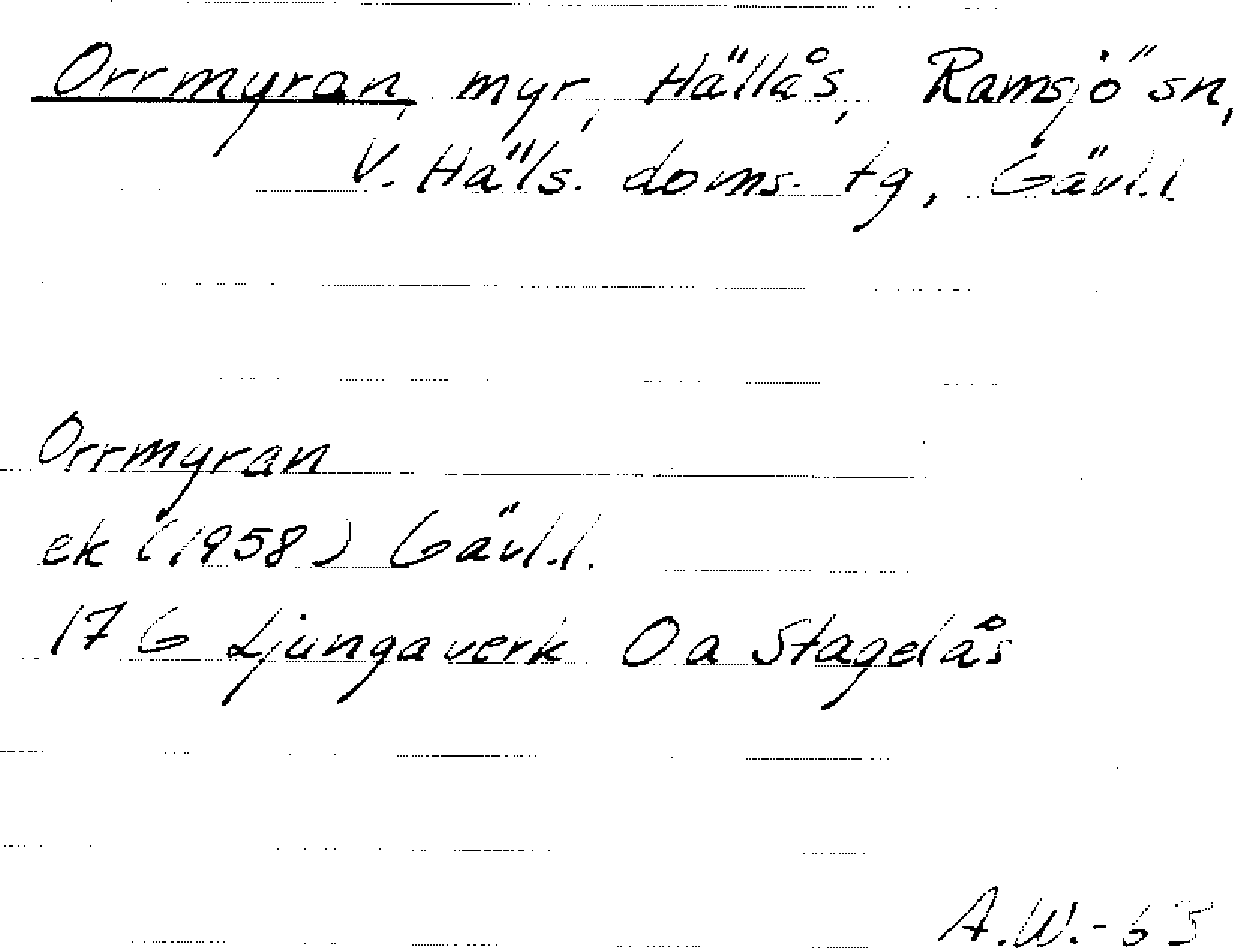 Orrmyran, myr, Hällås, Ramsjö sn,
V. Häls. doms. tg, Gävl.l
Orrmyran
ek (1958) Gävl.l.
17 G Ljungaverk Oa Stagdås
A.W.-65